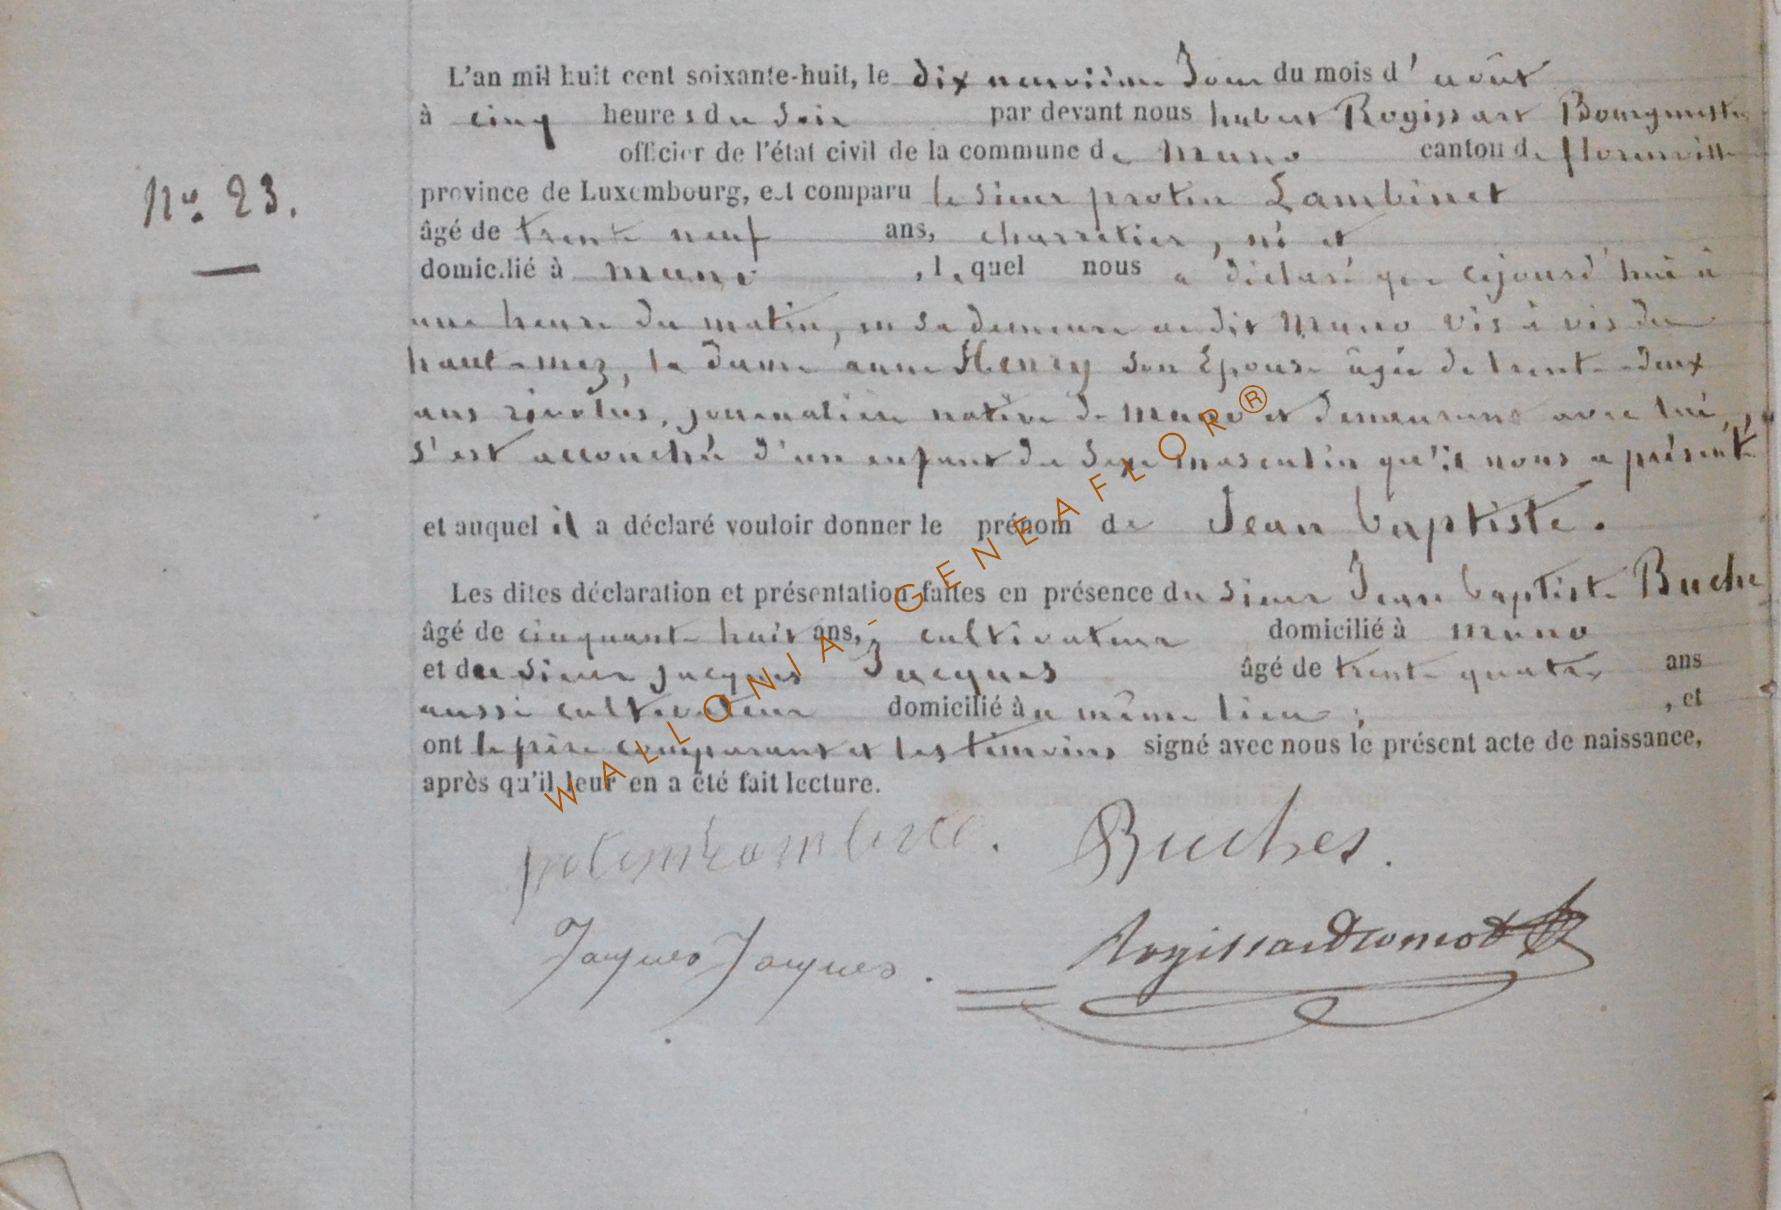 L'an mil huit cent soixante-huit, le dix neuvième Jour du mois d'août
à cinq heures du Soir par devant nous hubert Rogissart Bourgmestre
officier de l'état civil de la commune de Muno canton de florenville
N° 23.
province de Luxembourg, est comparu le sieur protin Lambinet
âgé de trente neuf ans, charretier, né et
domicilié à muno, lequel nous a déclaré que cejourd'hui à
une heure du matin, en sa demeure audit Muno vis à vis du
haut-mez, la dame anne Henry son Epouse âgée de trente-deux
ans révolus, journalière native de muno et demeurant avec lui,
s'est accouchée d'un enfant du sexe masculin qu'il nous a présenté
et auquel il a déclaré vouloir donner le prénom de Jean baptiste.
Les dites déclaration et présentation faites en présence du sieur Jean baptiste Buche
âgé de cinquante huit ans, cultivateur domicilié à muno
et du sieur jacques Jacques âgé de trente quatre ans
aussi cultivateur domicilié au même lieu ; , et
ont le père comparant et les témoins signé avec nous le présent acte de naissance,
après qu'il leur en a été fait lecture.
Buches.
Jacques Jacques.
WALLONIA-GENEAFLOR®